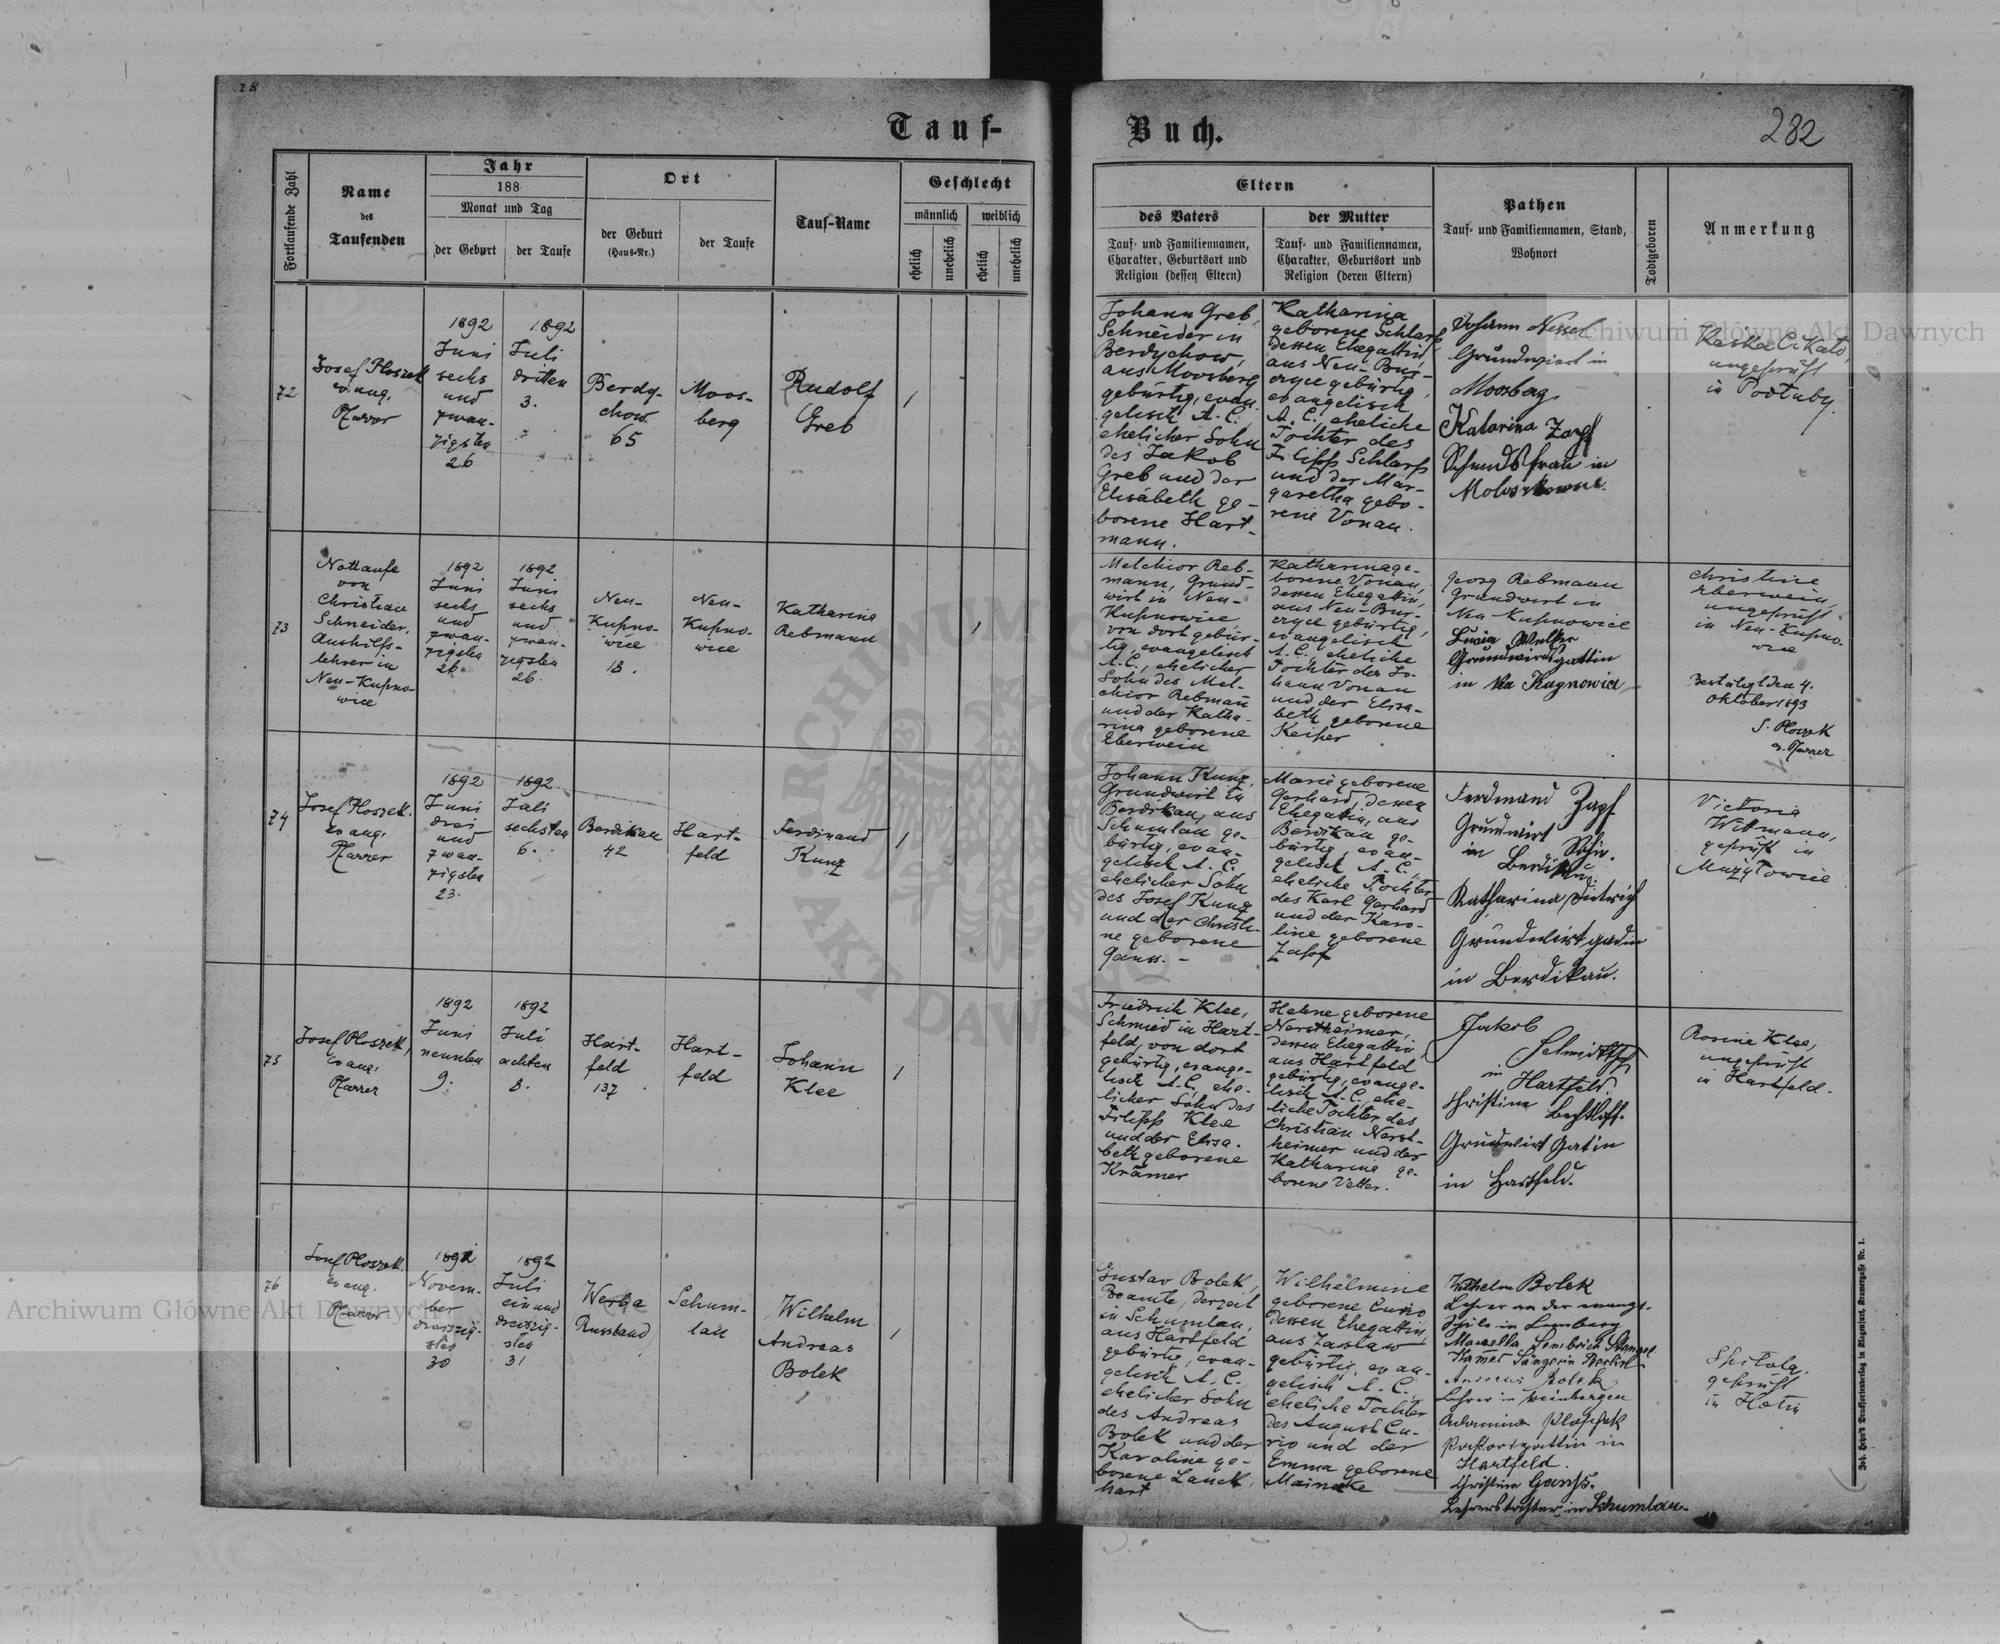 28
Tauf-
Buch.
282
Fortlaufende Zahl
Name
des
Taufenden
Jahr
188
Monat und Tag
der Geburt
der Taufe
Ort
der Geburt
(Haus-Nr.)
der Taufe
Tauf-Name
Geschlecht
männlich
weiblich
ehelich
unehelich
ehelich
unehelich
Eltern
des Vaters
Tauf- und Familiennamen,
Charakter, Geburtsort und
Religion (dessen Eltern)
der Mutter
Tauf- und Familiennamen,
Charakter, Geburtsort und
Religion (deren Eltern)
Pathen
Tauf- und Familiennamen, Stand,
Wohnort
Todtgeboren
Anmerkung
72
Josef Ploszek
evang.
Pfarrer
1892
Juni
sechs
und
zwan-
zigsten
26
1892
Juli
dritten
3.
Berdy-
chow
65
Moos-
berg
Rudolf
Greb
1
Johann Greb,
Schneider in
Berdychow,
aus Moosberg
gebürtig, evan-
gelisch A. C.,
ehelicher Sohn
des Jakob
Greb und der
Elisabeth ge-
borene Hart-
mann.
Katharina
geborene Schlarp
dessen Ehegattin,
aus Neu-Bur-
czyce gebürtig,
evangelisch
A. C., eheliche
Tochter des
Filipp Schlarp
und der Mar-
garetha gebo-
rene Vonau.
Johann
Grundwirt in
Moosberg
Katarina Zapf
in
in Podłuby
ungeprüft
73
Nottaufe
von
Christian
Schneider,
Aushilfs-
lehrer in
Neu-Kupno-
wice
1892
Juni
sechs
und
zwan-
zigsten
26.
1892
Juni
sechs
und
zwan-
zigsten
26.
Neu-
Kupno-
wice
18.
Neu-
Kupno-
wice
Katharina
Rebmann
1
Melchior Reb-
mann, Grund-
wirt in Neu-
Kupnowice
von dort gebür-
tig, evangelisch
A.C., ehelicher
Sohn des Mel-
chior Rebmann
und der Katha-
rina geborene
Eberwein
Katharina ge-
borene Vonau,
dessen Ehegattin,
aus Neu-Bur-
czyce gebürtig,
evangelisch
A. C., eheliche
Tochter des Jo-
hann Vonau
und der Elisa-
beth geborene
Keiper
Georg Rebmann
Grundwirt in
Neu Kupnowice
Grundwirtsgattin
in Neu Kupnowice
Christine
Eberwein,
ungeprüft
in Neu-Kupno-
wice
Bestätigt den 4.
Oktober 1893
J. Ploszek
ev. Pfarrer
74
Josef Ploszek.
evang.
Pfarrer
1892
Juni
drei
und
zwan-
zigsten
23.
1892
Juli
sechsten
6.
Berdikau
42
Hart-
feld
Ferdinand
Kunz
1
Johann Kunz,
Grundwirt in
Berdikau, aus
Schumlau ge-
bürtig, evan-
gelisch A. C.,
ehelicher Sohn
des Josef Kunz
und der Christi-
ne geborene
Gauss. -
Marie geborene
Gerhard, dessen
Ehegattin, aus
Berdikau ge-
bürtig, evan-
gelisch A. C.,
eheliche Tochter
des Karl Gerhard
und der Karo-
line geborene
Zapf
Ferdinand Zapf
Grundwirt
in Berdikau.
Katharina Dietrich
Grundwirt gadin
in Berdikau.
Victoria
Witmann,
geprüft in
Mużyłowice
75
Josef Ploszek,
evang.
Pfarrer
1892
Juni
neunten
9.
1892
Juli
achten
8.
Hart-
feld
137
Hart-
feld
Johann
Klee
1
Friedrich Klee,
Schmied in Hart-
feld, von dort
gebürtig, evange-
lisch A.C., ehe-
licher Sohn des
Filipp Klee
und der Elisa-
beth geborene
Krämer
Helene geborene
Nerstheimer,
dessen Ehegattin
aus Hartfeld
gebürtig, evange-
lisch A.C., ehe-
liche Tochter des
Christian Nerst-
heimer und der
Katharine ge-
borene Vetter.
Jakob
in Hartfeld
Christina Bechtloff.
Grundwirt Gatin
in Hartfeld.
Rosine Klee,
ungeprüft
in Hartfeld.
76
Josef Ploszek.
evang.
Pfarrer
1892
Novem-
ber
dreiszig-
sten
30
1892
Juli
einund
dreiszig-
sten
31
Werba
Russland
Schum-
lau
Wilhelm
Andreas
Bolek
1
Gustav Bolek,
Beamte, derzeit
in Schumlau,
aus Hartfeld
gebürtig, evan-
gelisch A. C.,
ehelicher Sohn
des Andreas
Bolek und der
Karoline ge-
borene Lanek
hart
Wilhelmine
geborene Curio
dessen Ehegattin,
aus Zaslaw
gebürtig, evan-
gelisch A. C.,
eheliche Tochter
des August Cu-
rio und der
Emma geborene
Mainecke
Wilhelm Bolek
Lehrer an der evang.
Schule in Lemberg
Marcella Sembrich Stengel
Kamer Sängerin Berlin
Andreas Bolek
Lehrer in Weinbergen
Ploszek
Pastorsgattin in
Hartfeld.
Christina Gauss.
Lehrerstochter in Schumlau.
geprüft
Joh. Heyn's Drucksortenverlag in Klagenfurt, Kramergasse Nr. 1.
Archiwum Główne Akt Dawnych
Archiwum Główne Akt Dawnych
ARCHIWUM GŁÓWNE AKT DAWNYCH